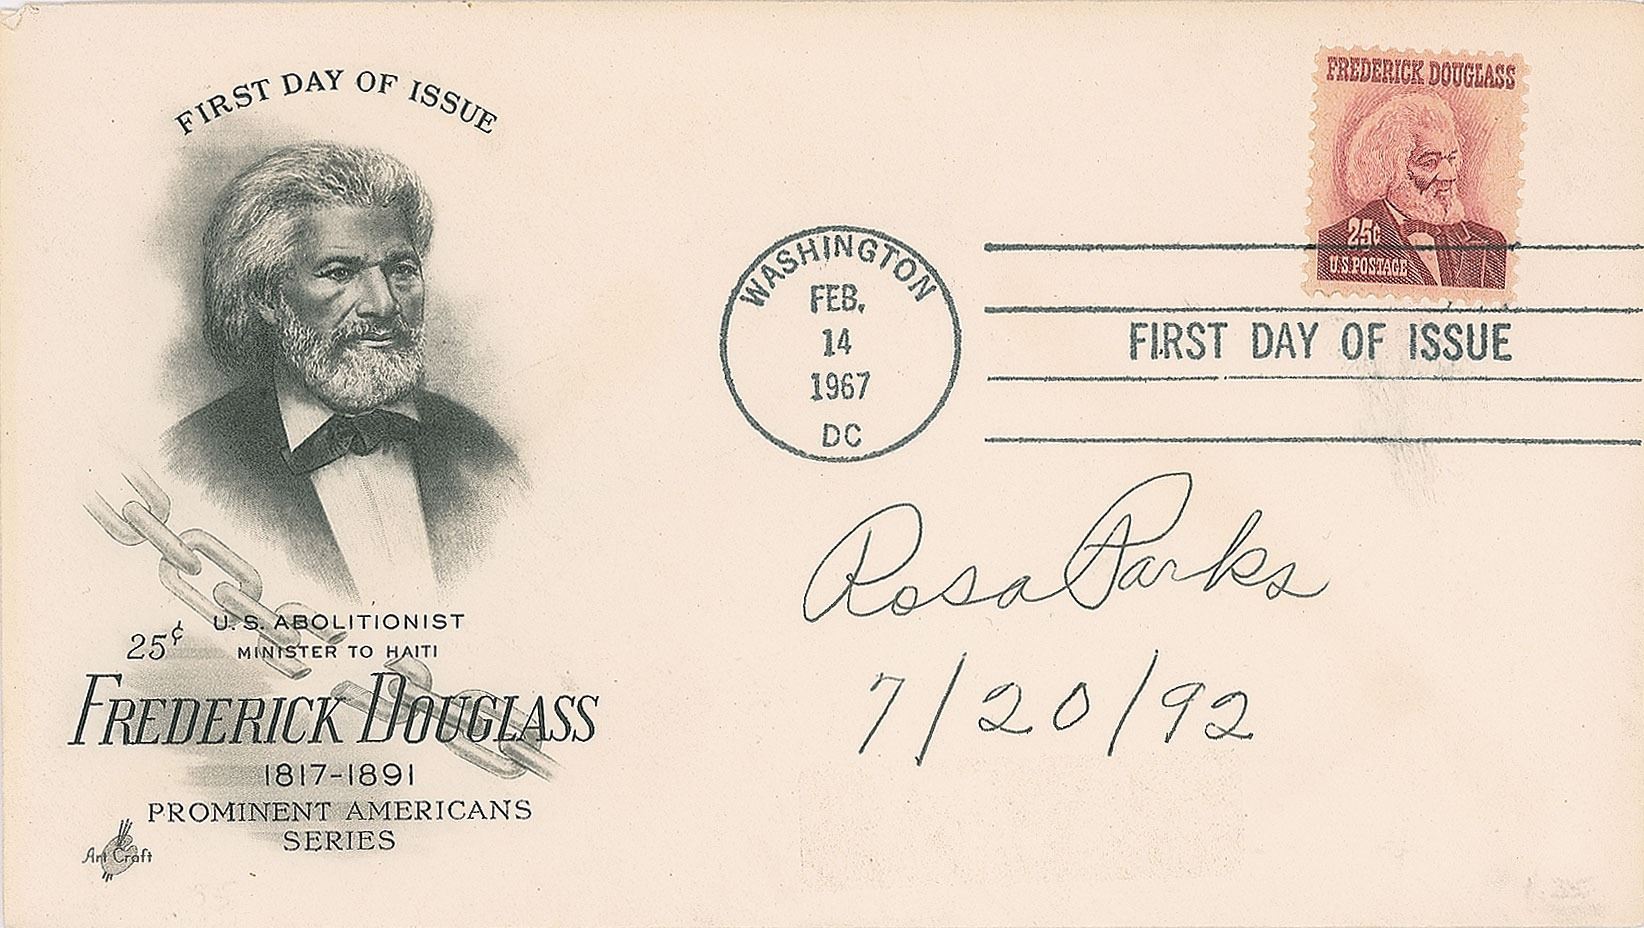 FIRST DAY OF ISSUE
U.S. ABOLITIONIST
25¢ MINISTER TO HAITI
FREDERICK DOUGLASS
1817-1891
PROMINENT AMERICANS
SERIES
Art Craft
FREDERICK DOUGLASS
25¢
U.S. POSTAGE
WASHINGTON
FEB.
14
1967
DC
FIRST DAY OF ISSUE
Rosa Parks
7/20/92